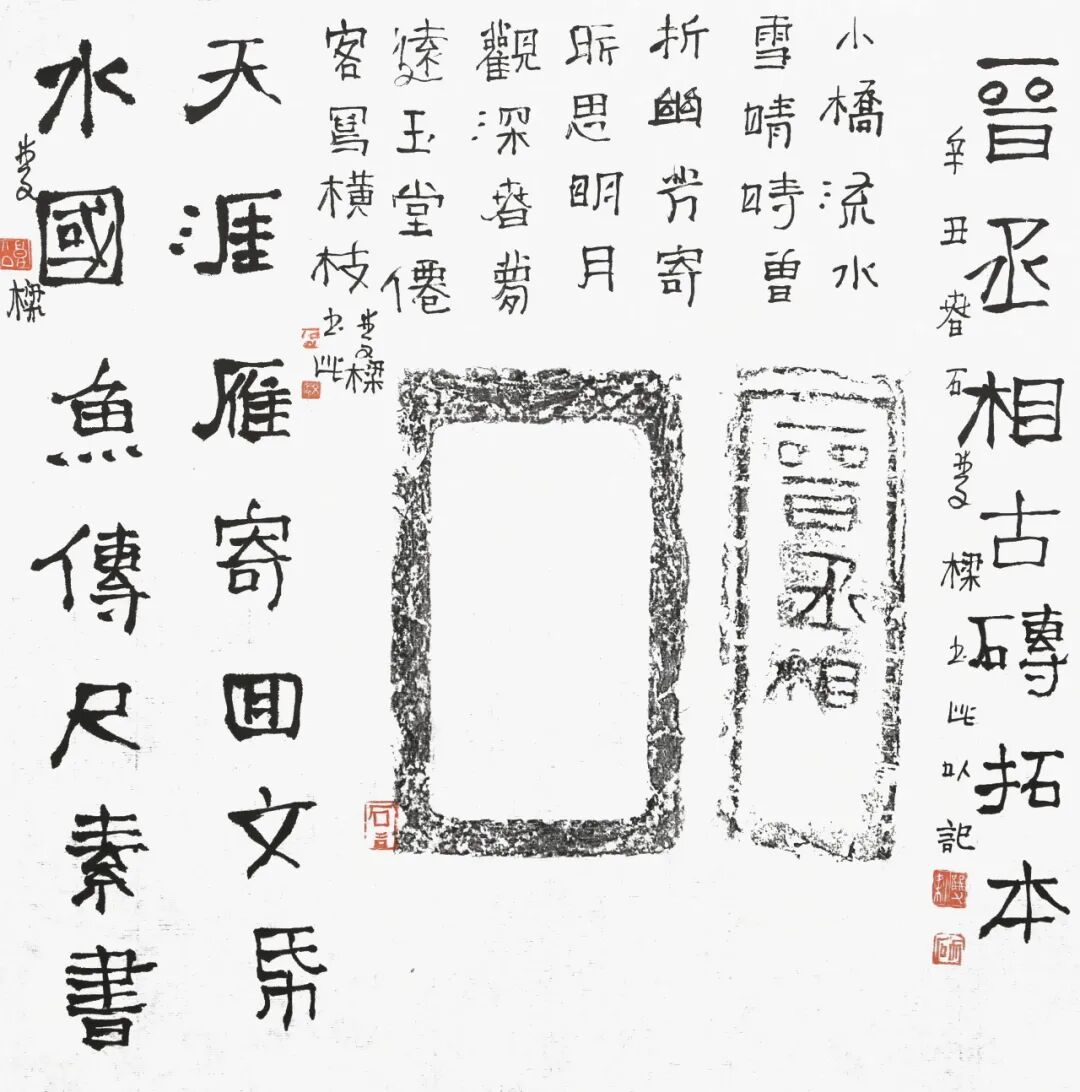 晉丞相古磚拓本
辛丑春石樑书此以記
小橋流水
雪晴時曾
折幽芳寄
所思明月
觀深春夢
遠玉堂僊
客寫橫枝
樑书此
晉丞相
天涯雁寄回文帋
水國魚傳尺素書
樑